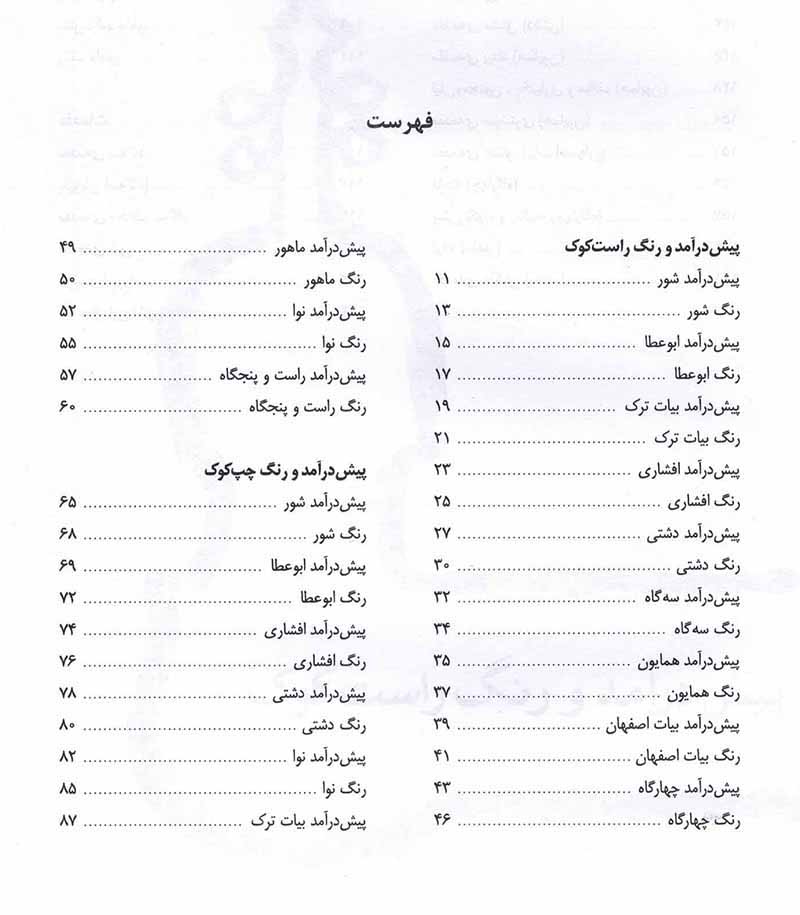 فهرست
پیش‌درآمد و رنگ راست‌کوک
پیش‌درآمد شور ........ ۱۱
رنگ شور ........ ۱۳
پیش‌درآمد ابوعطا ........ ۱۵
رنگ ابوعطا ........ ۱۷
پیش‌درآمد بیات ترک ........ ۱۹
رنگ بیات ترک ........ ۲۱
پیش‌درآمد افشاری ........ ۲۳
رنگ افشاری ........ ۲۵
پیش‌درآمد دشتی ........ ۲۷
رنگ دشتی ........ ۳۰
پیش‌درآمد سه‌گاه ........ ۳۲
رنگ سه‌گاه ........ ۳۴
پیش‌درآمد همایون ........ ۳۵
رنگ همایون ........ ۳۷
پیش‌درآمد بیات اصفهان ........ ۳۹
رنگ بیات اصفهان ........ ۴۱
پیش‌درآمد چهارگاه ........ ۴۳
رنگ چهارگاه ........ ۴۶
پیش‌درآمد ماهور ........ ۴۹
رنگ ماهور ........ ۵۰
پیش‌درآمد نوا ........ ۵۲
رنگ نوا ........ ۵۵
پیش‌درآمد راست و پنجگاه ........ ۵۷
رنگ راست و پنجگاه ........ ۶۰
پیش‌درآمد و رنگ چپ‌کوک
پیش‌درآمد شور ........ ۶۵
رنگ شور ........ ۶۸
پیش‌درآمد ابوعطا ........ ۶۹
رنگ ابوعطا ........ ۷۲
پیش‌درآمد افشاری ........ ۷۴
رنگ افشاری ........ ۷۶
پیش‌درآمد دشتی ........ ۷۸
رنگ دشتی ........ ۸۰
پیش‌درآمد نوا ........ ۸۲
رنگ نوا ........ ۸۵
پیش‌درآمد بیات ترک ........ ۸۷